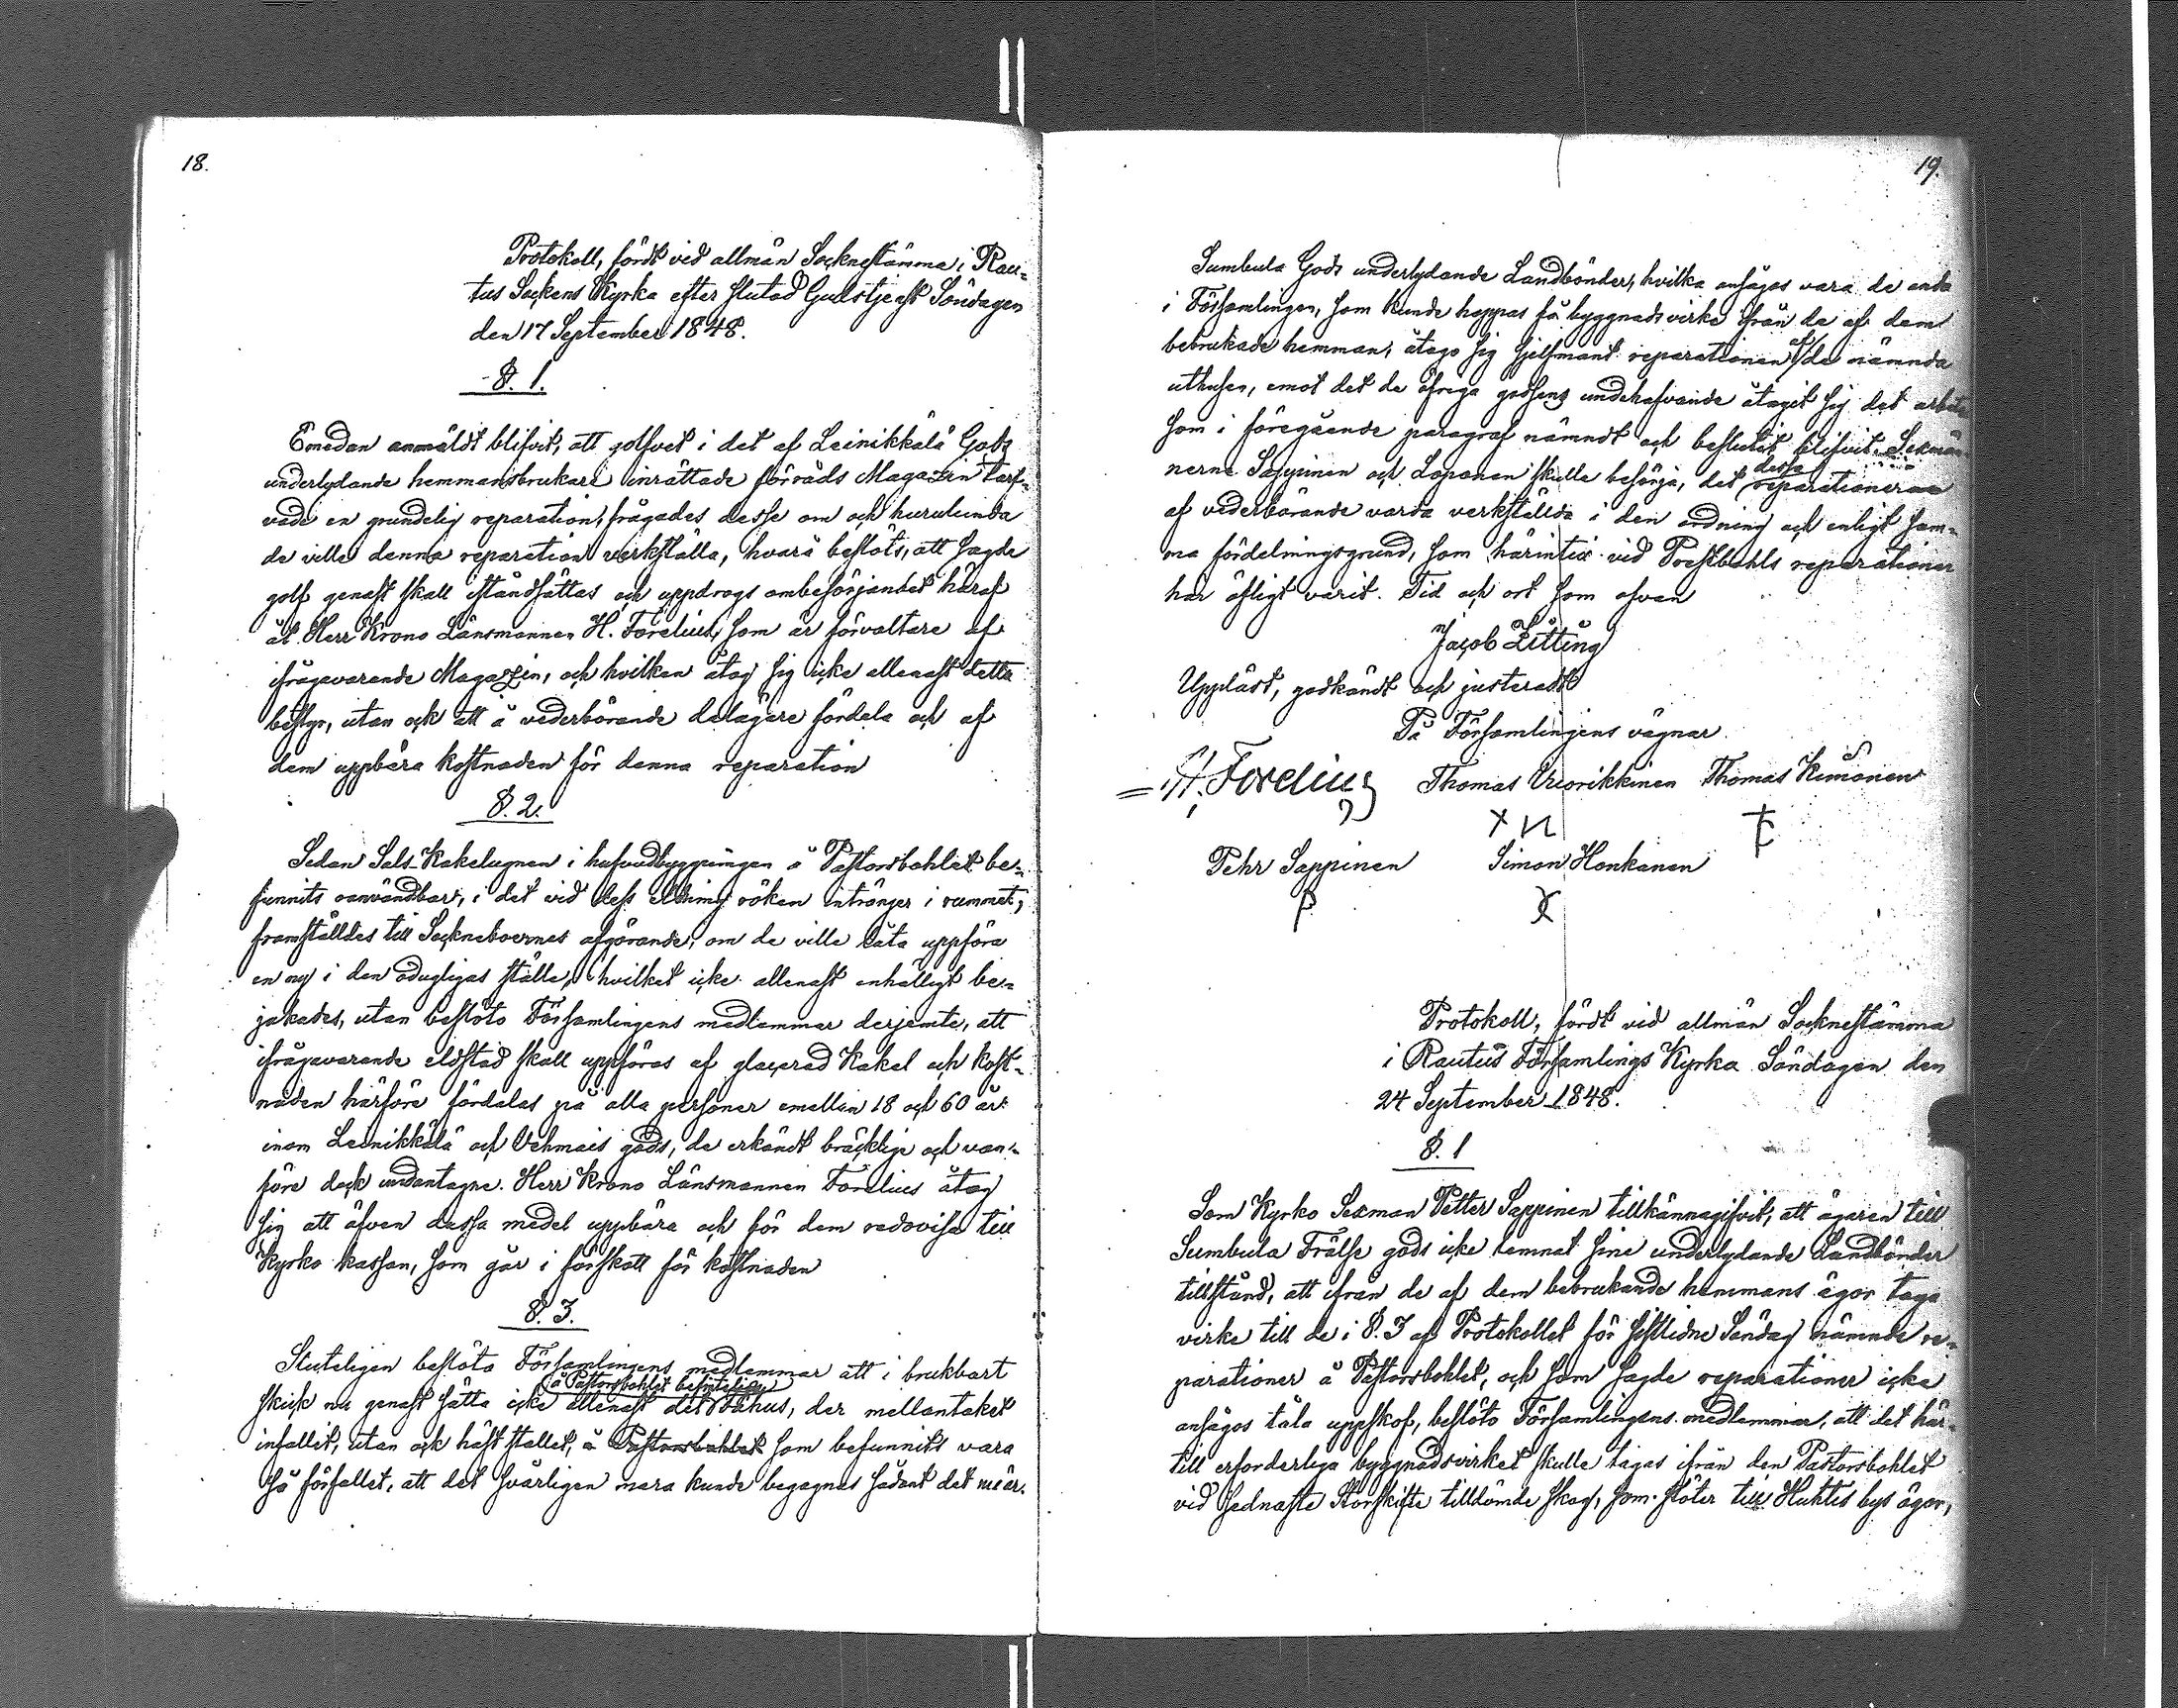 18.
Protokoll, fördt vid allmän Socknestämma i Rau-
tus Sockens Kyrka efter slutad Gudstjenst Söndagen
den 17 September 1848.
§. 1.
Emedan anmäldt blifvit, att golfvet i det af Leinikkälä Gods
underlydande hemmansbrukare inrättade förråds Magazin tarf-
vade en grundelig reparation, frågades desse om och hurulunda
de ville denna reparation verkställa, hvarå beslöts, att sagde
golf genast skall iståndsättas och uppdrogs ombesörjandet häraf
åt Herr Krono Länsmannen H. Forelius, som är förvaltare af
ifrågavarande Magazin, och hvilken åtog sig icke allenast detta
bestyr, utan ock att å vederbörande delägare fördela och af
dem uppbära kostnaden för denna reparation
§. 2.
Sedan Sals Kakelugnen i hufvudbyggningen å Pastorsbohlet be-
funnits oanvändbar, i det vid dess eldning röken intränger i rummet,
framställdes till Sockneboernes afgörande, om de ville låta uppföra
en ny i den odugligas ställe, hvilket icke allenast enhälligt be-
jakades, utan beslöto Församlingens medlemmar derjemte, att
ifrågavarande eldstad skall uppföras af glacerad Kakel och kost-
naden härföre fördelas på alla personer emellan 18 och 60 år
inom Leinikkälä och Vehmais gods, de erkändt bräcklige och van-
före dock undantagne. Herr Krono Länsmannen Forelius åtog
sig att äfven dessa medel uppbära och för dem redovisa till
Kyrko kassan, som går i förskott för kostnaden
§. 3.
Sluteligen beslöto Församlingens medlemmar att i brukbart
å Pastorsbohlet befinteliga
skick nu genast sätta icke allenast det Fähus, der mellantaket
infallit, utan ock häst stallet, å Pastorsbohlet som befunnits vara
så förfallet, att det svårligen mera kunde begagnas sådant det nu är.
19.
Sumbula Gods underlydande Landbönder, hvilka ansågos vara de enda
i Församlingen, som kunde hoppas få byggnadsvirke från de af dem
bebrukade hemman, åtogo sig sjelfmant reparationen af de nämnda
uthusen, emot det de öfriga godsens undehafvande åtagit sig det arbete
som i föregående paragraf nämndt och beslutit blifvit. Sexmän-
nerne Sappinen och Loponen skulle besörja, det dessa reparationerne
af vederbörande varda verkställda i den ordning och enligt sam-
ma fördelningsgrund, som härintix vid Prestbohls reparationer
har öfligt varit. Tid och ort som ofvan
Jacob Zitting
Uppläst, godkändt och justeradt
På Församlingens vägnar
H. Forelius Thomas Vuorikkinen Thomas Kimönen
Pehr Sappinen Simon Honkanen
Protokoll, fördt vid allmän Socknestämma
i Rautus Församlings Kyrka Söndagen den
24 September 1848.
§. 1
Som Kyrko Sexman Petter Sappinen tillkännagifvit, att ägaren till
Sumbula Frälse gods icke lemnat sine underlydande Landbönder
tillstånd, att ifrån de af dem bebrukande hemmans ägor taga
virke till de i §. 3 af Protokollet för sistlidne Söndag nämnde re-
parationer å Pastorsbohlet, och som sagde reparationer icke
ansågos tåla uppskof, beslöto Församlingens medlemmar, att det här-
till erforderliga byggnadsvirket skulle tagas ifrån den Pastorsbohlet
vid sednaste Storskifte tilldömde skog, som stöter till Huhtis bys ägor,